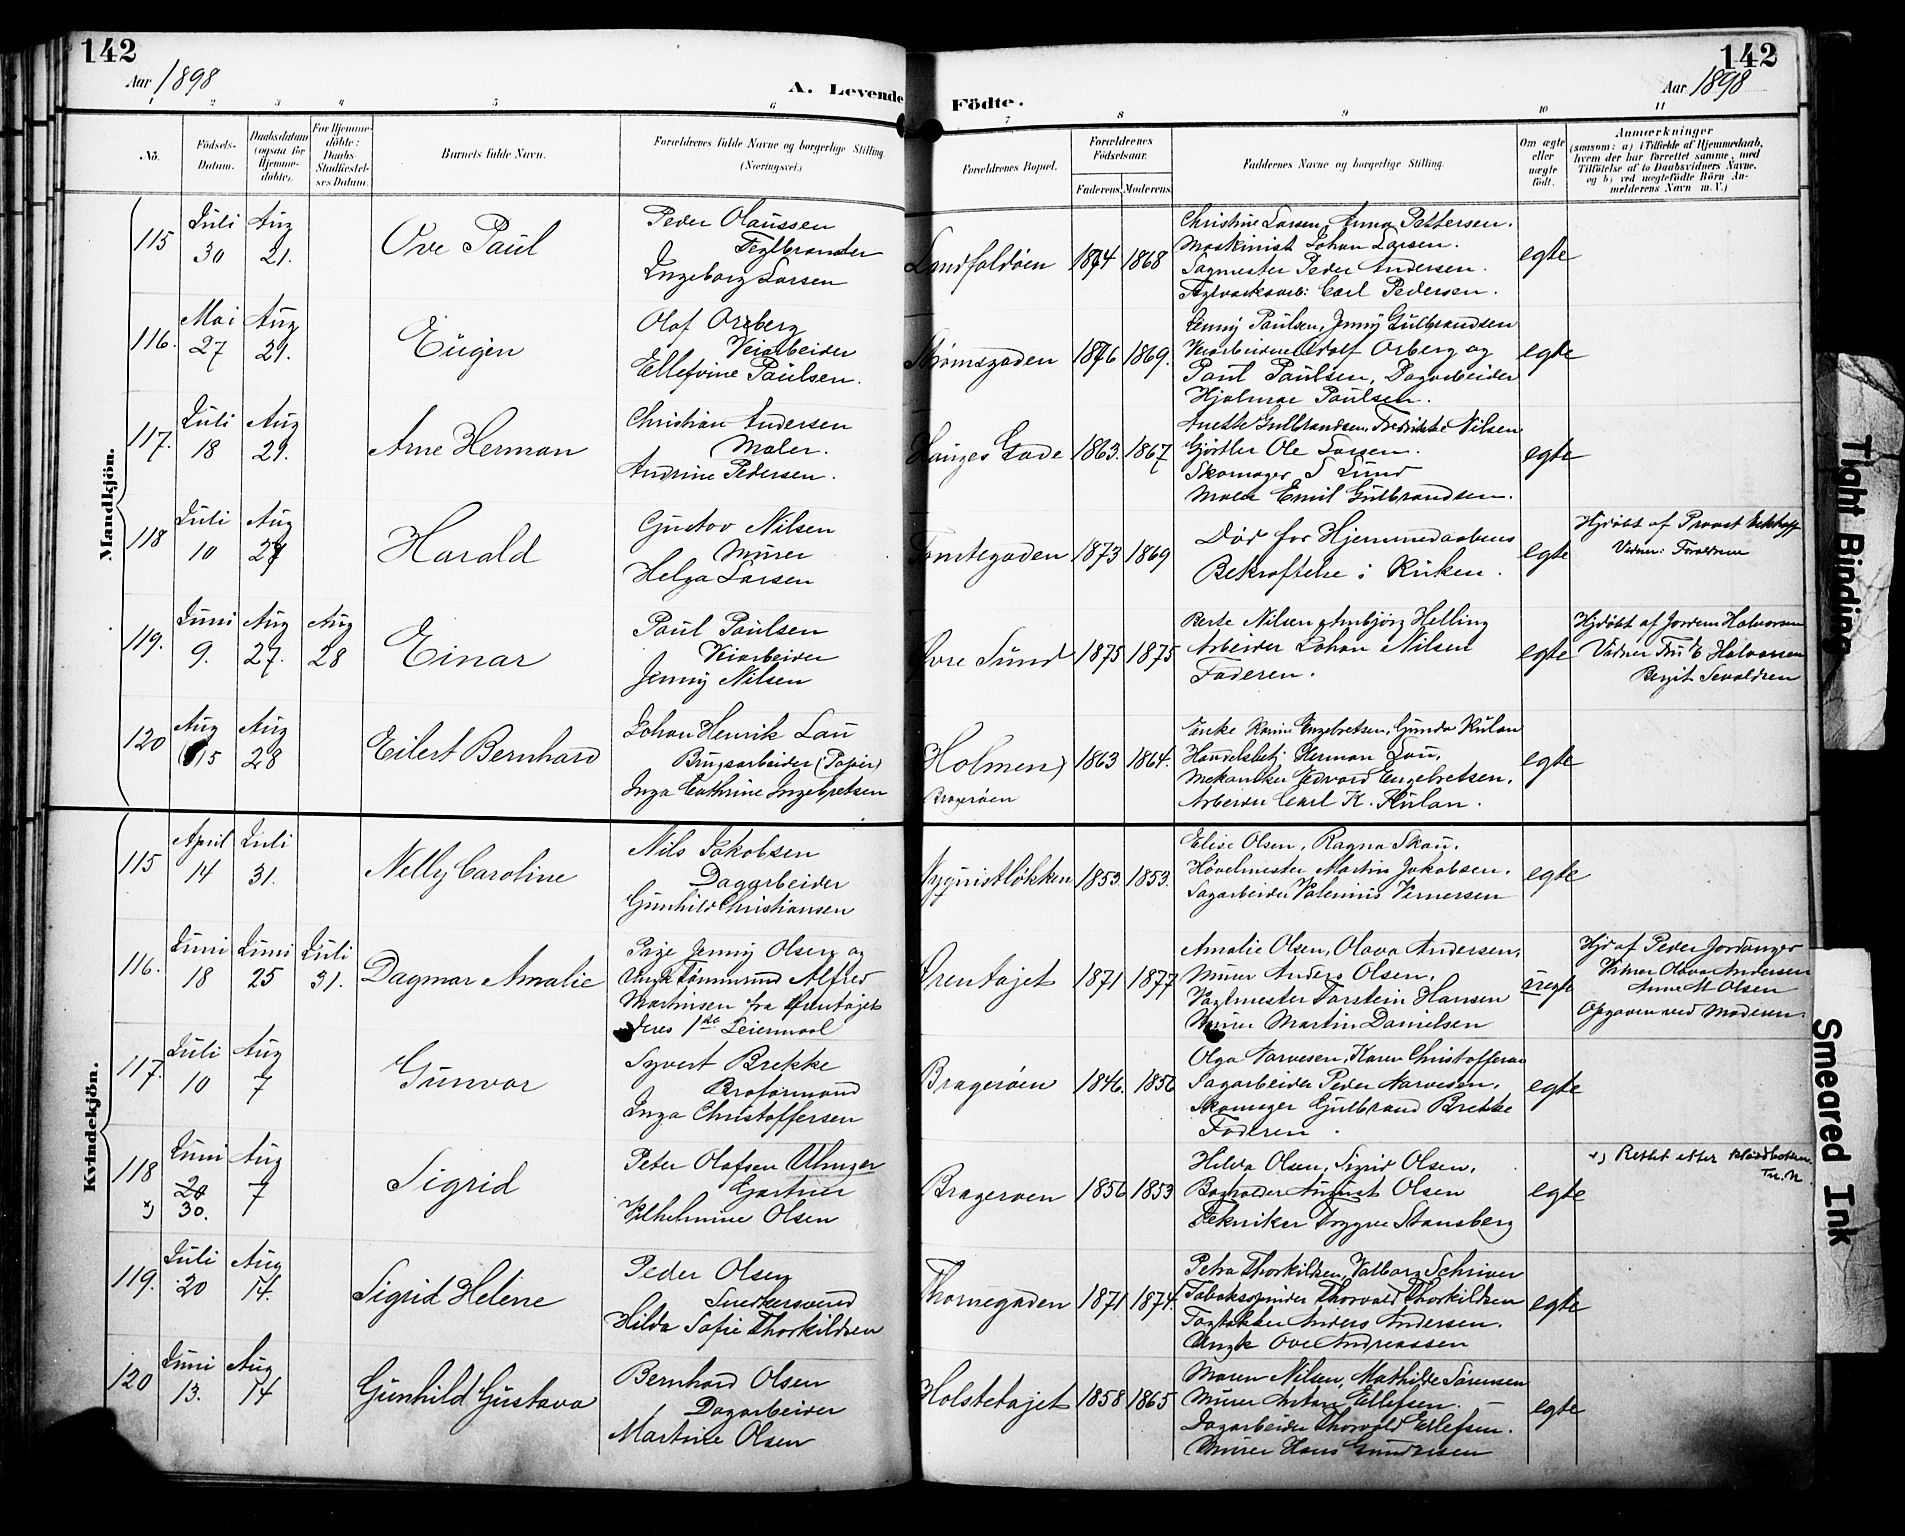 142
Aar 1898
A. Levende Födte.
142
Aar 1898
1 2 3 4 5 6 7 8 9 10 11
No.
Födsels-Datum.
Daabsdatum (ogsaa for Hjemmedöbte).
For Hjemmedöbte: Daabs Stadfæstelses Datum.
Barnets fulde Navn.
Forældrenes fulde Navne og borgerlige Stilling (Næringsvei.)
Forældrenes Bopæl.
Forældrenes Födselsaar.
Faderens. Moderens.
Faddernes Navne og borgerlige Stilling.
Om ægte eller uægte født.
Anmærkninger
(saasom: a) i Tilfælde af Hjemmedaab,
hvem der har forrettet samme, med
Tilföielse af to Daabsvidners Navne.
og b) ved uægtefödte Börn An-
melderens Navn m. V.)
Mandkjön.
115
Juli 30
Aug 21.
Ove Paul
Peder Olaussen
Teglbrænder
Ingeborg Larsen
Landfaldøen
1874 1868
Christine Larsen, Anna Pettersen.
Maskinist Johan Larsen.
Sagmester Peder Andersen.
Teglværksarb: Carl Pedersen.
egte
116.
Mai 27
Aug 21.
Eugen
Olaf Orberg
Veiarbeider
Ellefine Paulsen.
Strømsgaden
1876 1869.
Jenny Paulsen, Jenny Gulbrandsen
Veiarbeiderne Adolf Orberg og
Paul Paulsen, Dagarbeider
Hjalmar Paulsen.
egte
117.
Juli 18
Aug 21.
Arne Herman
Christian Andersen
Maler.
Andrine Pedersen.
Hauges Gade
1863. 1867
Anette Gulbrandsen, Fredrikke Nilsen
Gjørtler Ole Larsen.
Skomager S Lund
Maler Emil Gulbrandsen.
egte
118
Juli 10
Aug 27
Harald
Gustav Nilsen
Murer
Helga Larsen
Tomtegaden
1873 1869
Død før Hjemmedaabens
Bekræftelse i Kirken.
egte
Hjdøbt af Provst Eckhoff
Vidner: Forældrene
119.
Juni 9.
Aug 27.
Aug 28
Einar
Paul Paulsen
Veiarbeider
Jenny Nilsen
Øvre Sund
1875 1875
Berte Nilsen, Ambjørg Helling
Arbeider Johan Nilsen
Faderen.
egte
Hjdøbt af Jordem Halvorsen
Vidner Fru E Halvorsen
Bergit Sevaldsen
120
Aug 15
Aug 28
Eilert Bernhard
Johan Henrik Lau
Brugsarbeider (Papir)
Inga Cathrine Ingebretsen
Holmen,
Bragerøen
1863 1864.
Enke Karine Engebretsen, Gunda Kulan
Handelsbetj. Herman Lau,
Mekaniker Edvard Engebretsen,
Arbeider Carl K. Kulan.
egte
Kvindekjön.
115
April 14
Juli 31.
Nelly Caroline
Nils Jakobsen
Dagarbeider
Gunhild Christiansen
Nyquistløkken
1853. 1853.
Elise Olsen, Ragna Skau.
Høvelmester Martin Jakobsen.
Sagarbeider Valennius Vernersen
egte
116.
Juni 18
Juni 25
Juli 31.
Dagmar Amalie
Pige Jenny Olsen og
Ungk Tømmermd Alfred
Martinsen fra Ørentøjet
deres 1ste Leiermaal
Ørentøjet
1871 1877
Amalie Olsen, Olava Andersen,
Murer Anders Olsen,
Vaglmester Torstein Hansen
Murer Martin Danielsen
uegte
Hjd af Peder Jordanger
Vidner Olava Andersen
Anne M Olsen
Opgaven ved Moderen.
117.
Juli 10
Aug 7
Gunvor
Syvert Brekke
Broformand
Inga Christoffersen
Bragerøen
1846. 1856
Olga Narvesen, Karen Christoffersen
Sagarbeider Peder Narvesen,
Skomager Gulbrand Brekke
Faderen.
egte
118
x)
Juni 20 30.
Aug 7
Sigrid
Peter Olafsen Ulunger
Gartner
Vilhelmine Olsen
Bragerøen
1856 1853
Hilda Olsen, Sigrid Olsen,
Bogholder August Olsen
Tekniker Trygve Stansberg
egte
x) Rettet efter kladdboken.
119.
Juli 20
Aug 14.
Sigrid Helene
Peder Olsen
Snedkersvend
Hilda Sofie Thorkildsen
Thornegaden
1871 1874.
Petra Thorkildsen, Valborg Schriver
Tobaksspinder Thorvald Thorkildsen
Taglækker Anders Andersen.
Ungk Ove Andreassen
egte
120
Juni 13.
Aug 14
Gunhild Gustava
Bernhard Olsen
Dagarbeider
Martine Olsen
Holstetøjet
1858 1865
Maren Nilsen, Mathilde Sørensen
Murer Anton Ellefsen.
Dagarbeider Thorvald Ellefsen.
Murer Hans Gundersen
egte
Tight Binding
Smeared Ink